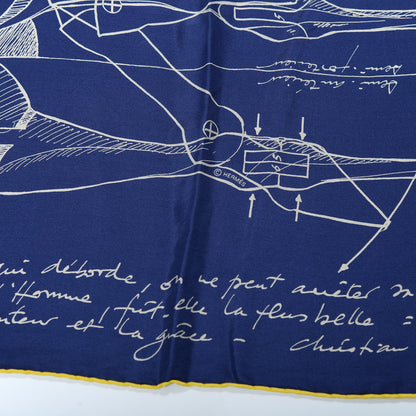 demi-intérieur
© HERMES
qui déborde, on ne peut arrêter
l'Homme, fût-elle la plus belle =
et la grâce - Christian